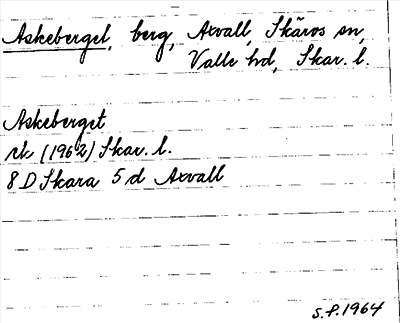 Askeberget, berg, Axvall, Skärvs sn,
Valle hd, Skar. l.
Askeberget
rt (1962) Skar. l.
8 D Skara 5 d Axvall
S.P. 1964